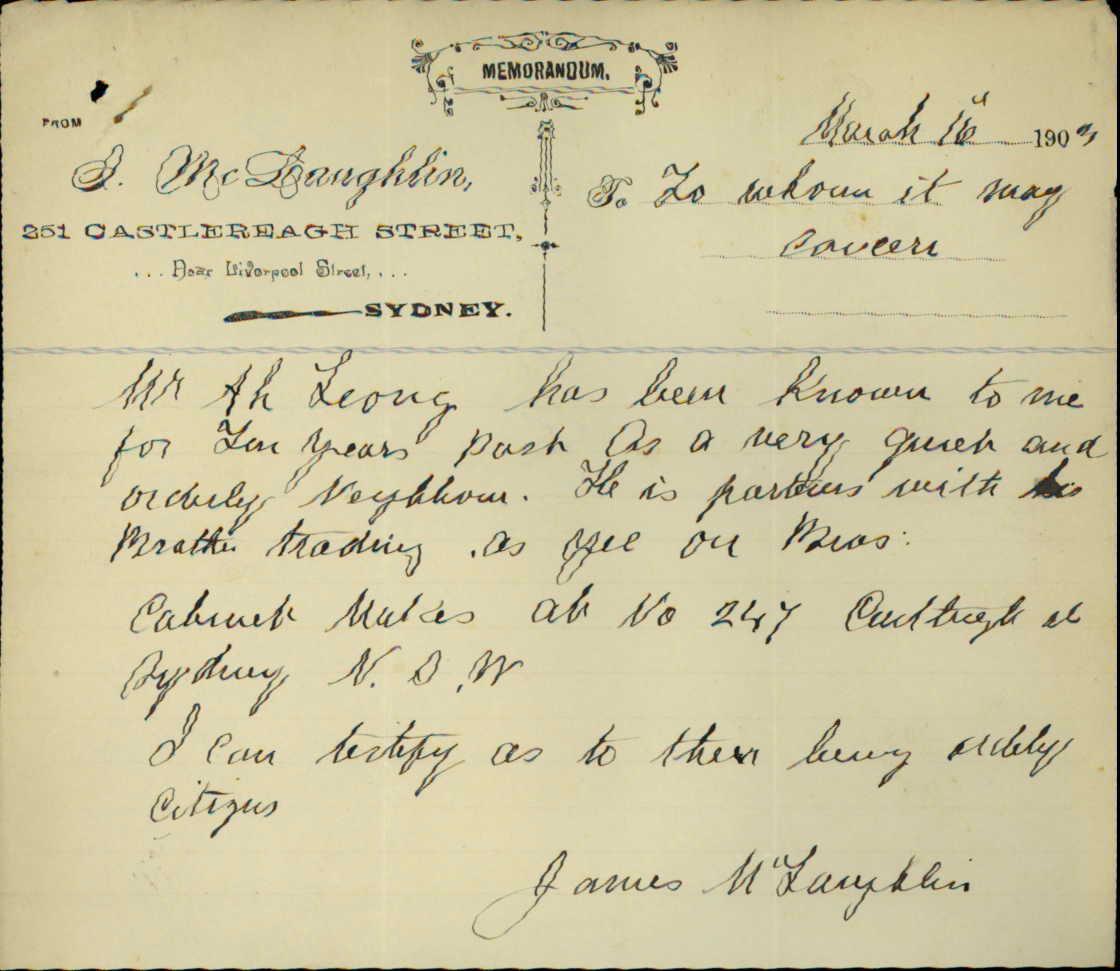 MEMORANDUM.
FROM
J. McLaughlin,
251 CASTLEREAGH STREET,
... Near Liverpool Street, ...
SYDNEY.
March 16 1903
To To whom it may
concern
Mr Ah Leong has been known to me
for Ten years past As a very quiet and
orderly Neighbour. He is partners with his
Brother trading as Yee on Bros.
Cabinet Makers at No 247 Castlereagh st
Sydney N.S.W
I can testify as to their being orderly
Citizens
James McLaughlin